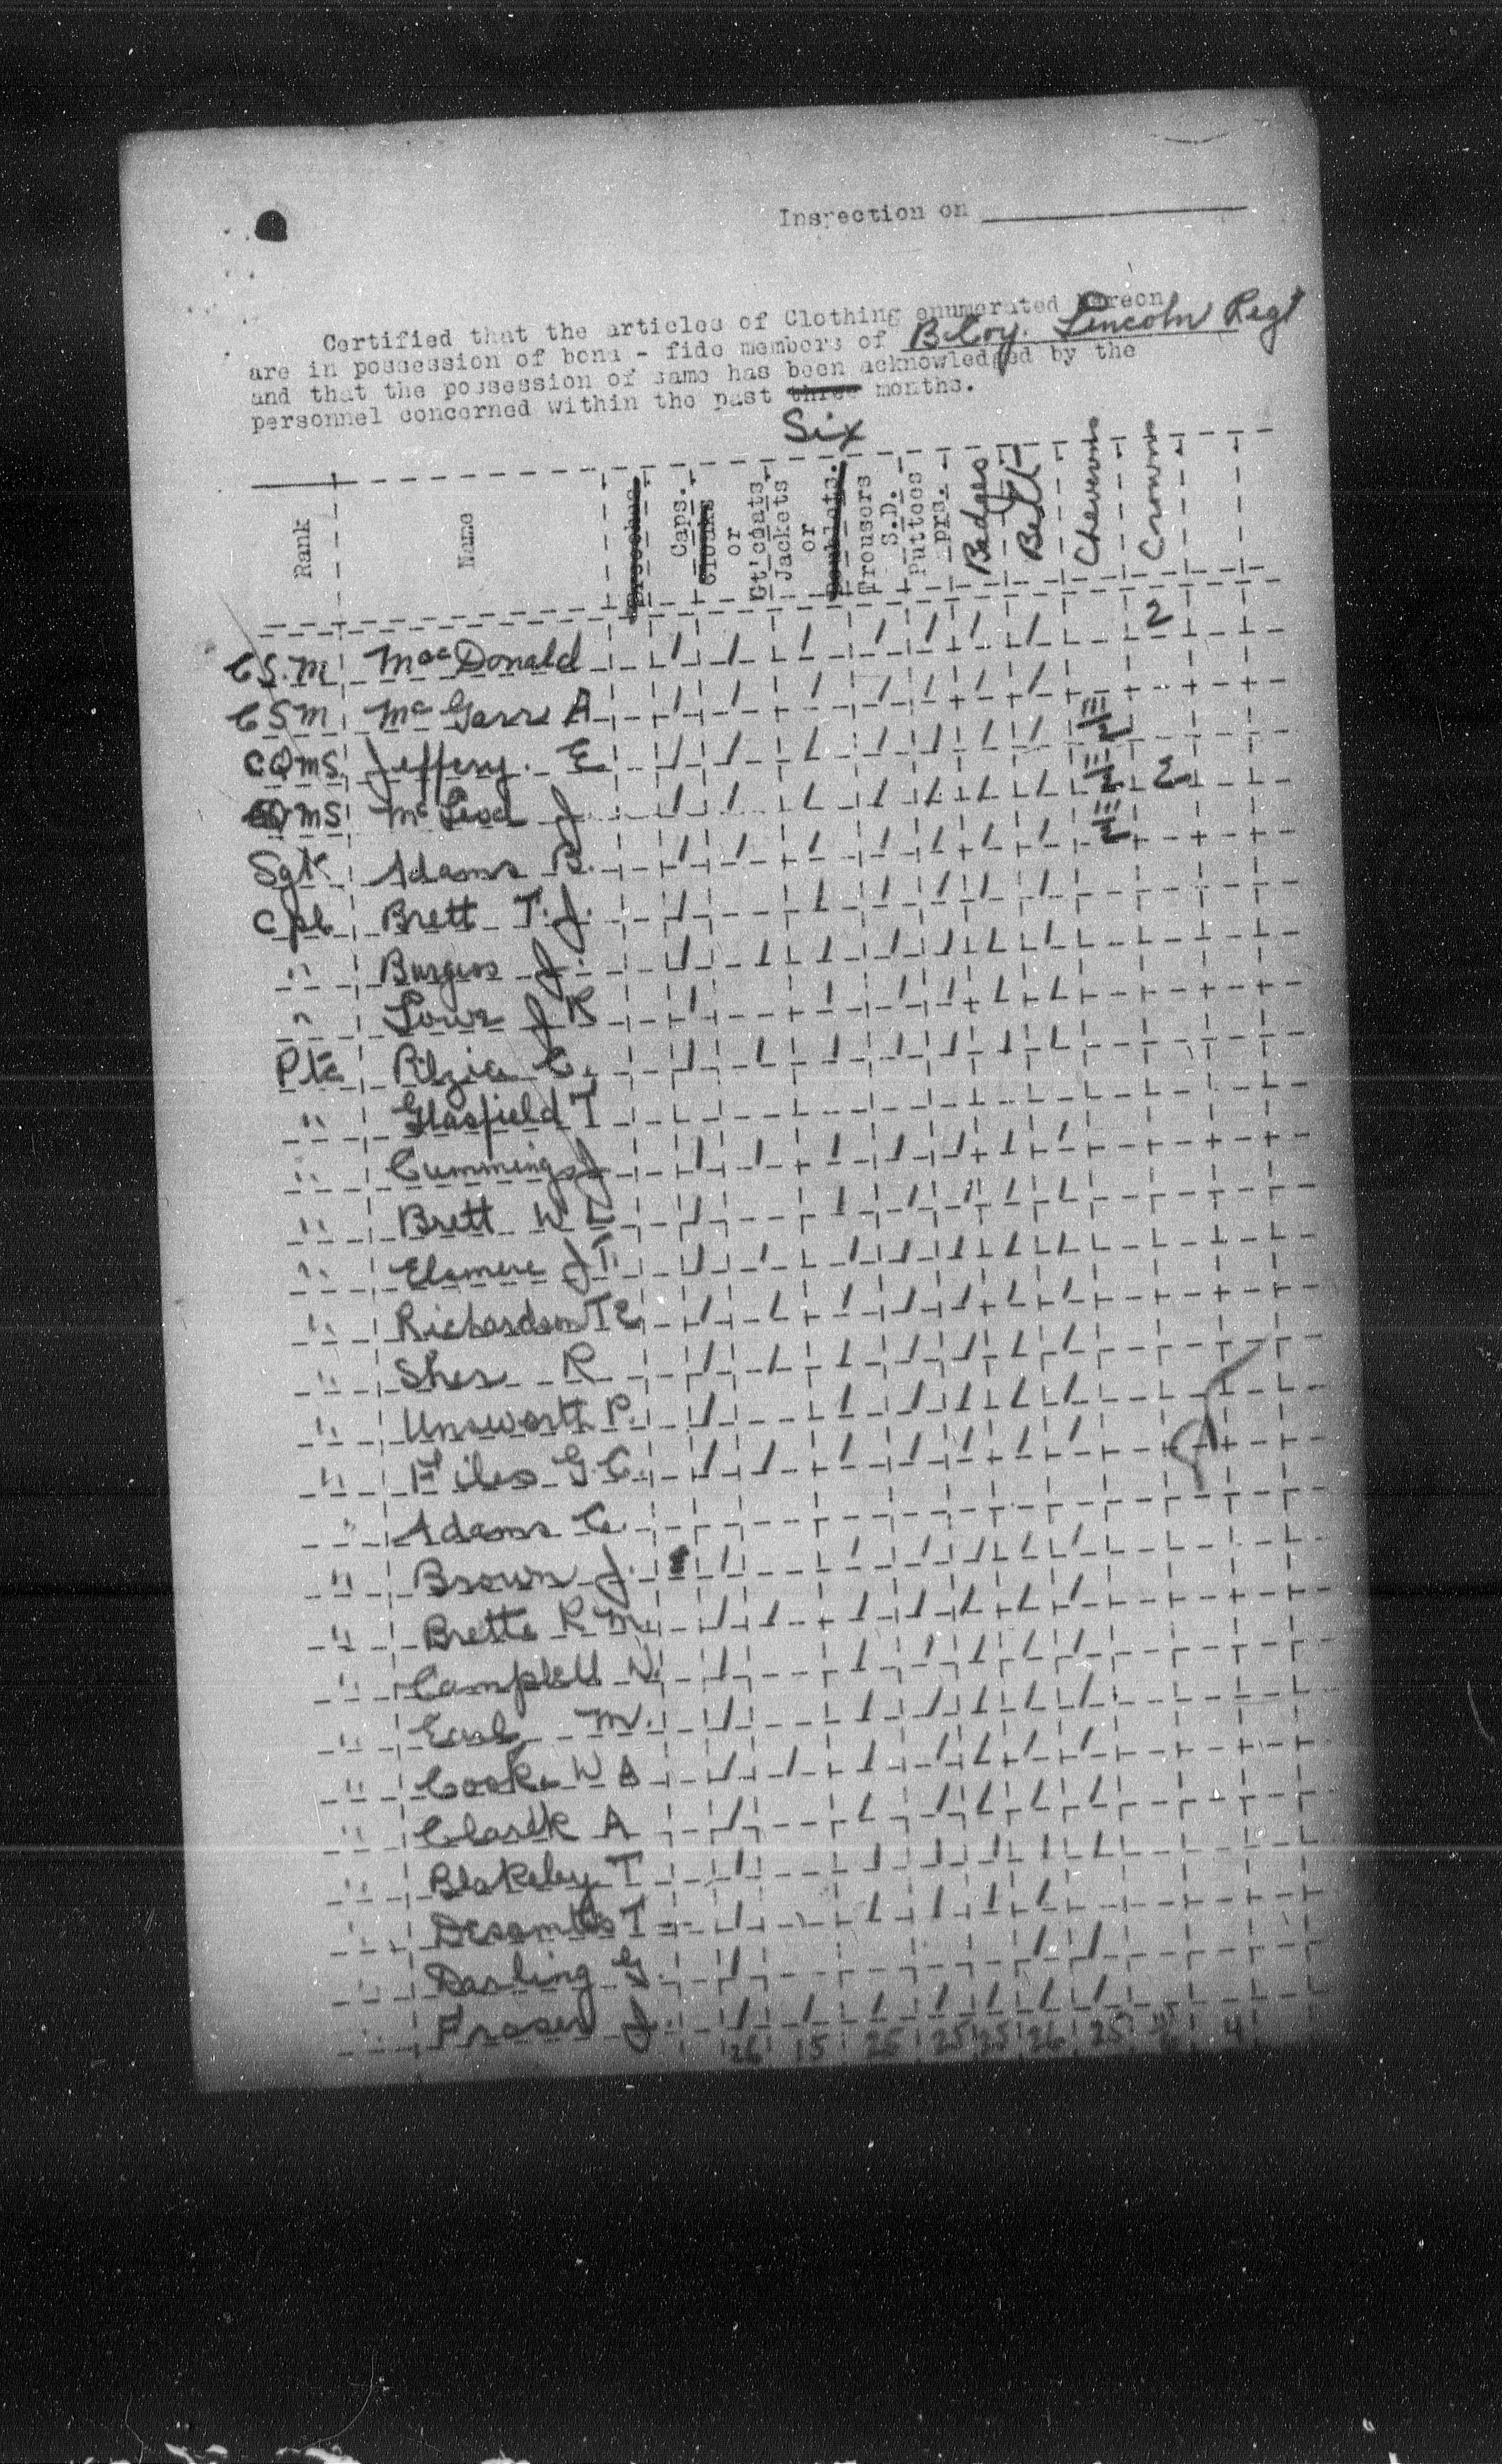 Inspection on
Certified that the articles of Clothing enumerated hereon
are in possession of bona - fide members of B Coy. Lincoln Regt
and that the possession of same has been acknowledged by the
personnel concerned within the past three months.
Six
Rank Name Caps. Cloaks or Gt'coats Jackets or Doublets. Trousers S.D. Puttees prs. Badges Belt Chevrons Crowns
C.S.M MacDonald 1 1 1 1 1 1 1 2
CSM McGarr A 1 1 1 1 1 1 1
CQMS Jeffery. E 1 1 1 1 1 1 1 III/2
CQMS McLeod J 1 1 1 1 1 1 1 III/2 2
Sgt Adams B. 1 1 1 1 1 1 1 III/2
Cpl Brett T.J. 1 1 1 1 1 1
" Burgess J. 1 1 1 1 1 1 1
" Lowe J R 1 1 1 1 1 1
Pte C. 1 1 1 1 1 1 1
" Glasfield T
" Cummings J 1 1 1 1 1 1 1
" Brett W L 1 1 1 1 1 1
" Elsmere J T. 1 1 1 1 1 1 1
" Richardson T E 1 1 1 1 1 1 1
" Sher R 1 1 1 1 1 1 1
" Unsworth P. 1 1 1 1 1 1
" Files G.C. 1 1 1 1 1 1 1
" Adams C.
" Brown J. 1 1 1 1 1 1
" Brett R M. 1 1 1 1 1 1 1
" Campbell W. 1 1 1 1 1 1
" Earl M. 1 1 1 1 1 1
" Cooke W A 1 1 1 1 1 1 1
" Clark A 1 1 1 1 1 1
" Blakeley T 1 1 1 1 1 1
" T 1 1 1 1 1
" Darling G. 1 1 1
" Fraser J. 1 1 1 1 1 1 1
26 15 25 25 25 26 25 4